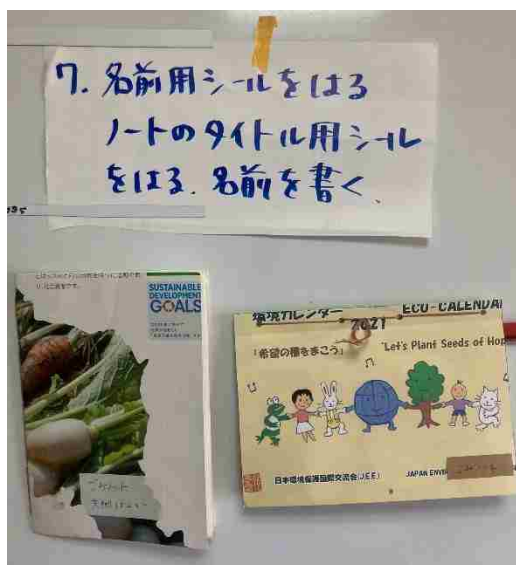 7. 名前用シールをはる
ノートのタイトル用シール
をはる. 名前を書く.
SUSTAINABLE
DEVELOPMENT
GOALS
環境カレンダー ECO-CALENDAR
2021
「希望の種をまこう」 "Let's Plant Seeds of Hop
日本環境保護国際交流会(J.E.E) JAPAN ENVI